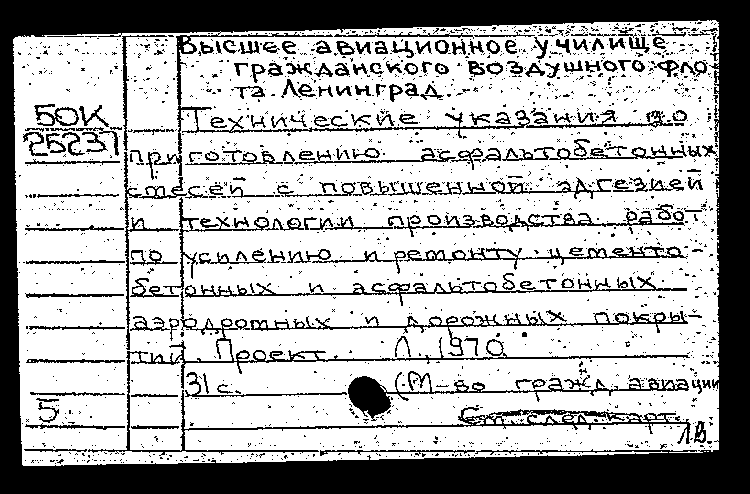 Высшее авиационное училище
гражданского воздушного фло
та Ленинград.
БОК
25231
Технические указания по
приготовлению асфальтобетонных
смесей с повышенной адгезией
и технологии производства работ
по усилению и ремонту цементо-
бетонных и асфальтобетонных
аэродромных и дорожных покры-
тий. Проект. Л., 1970
31 с. (М-во гражд. авиации
5
См. след. карт.
ЛВ